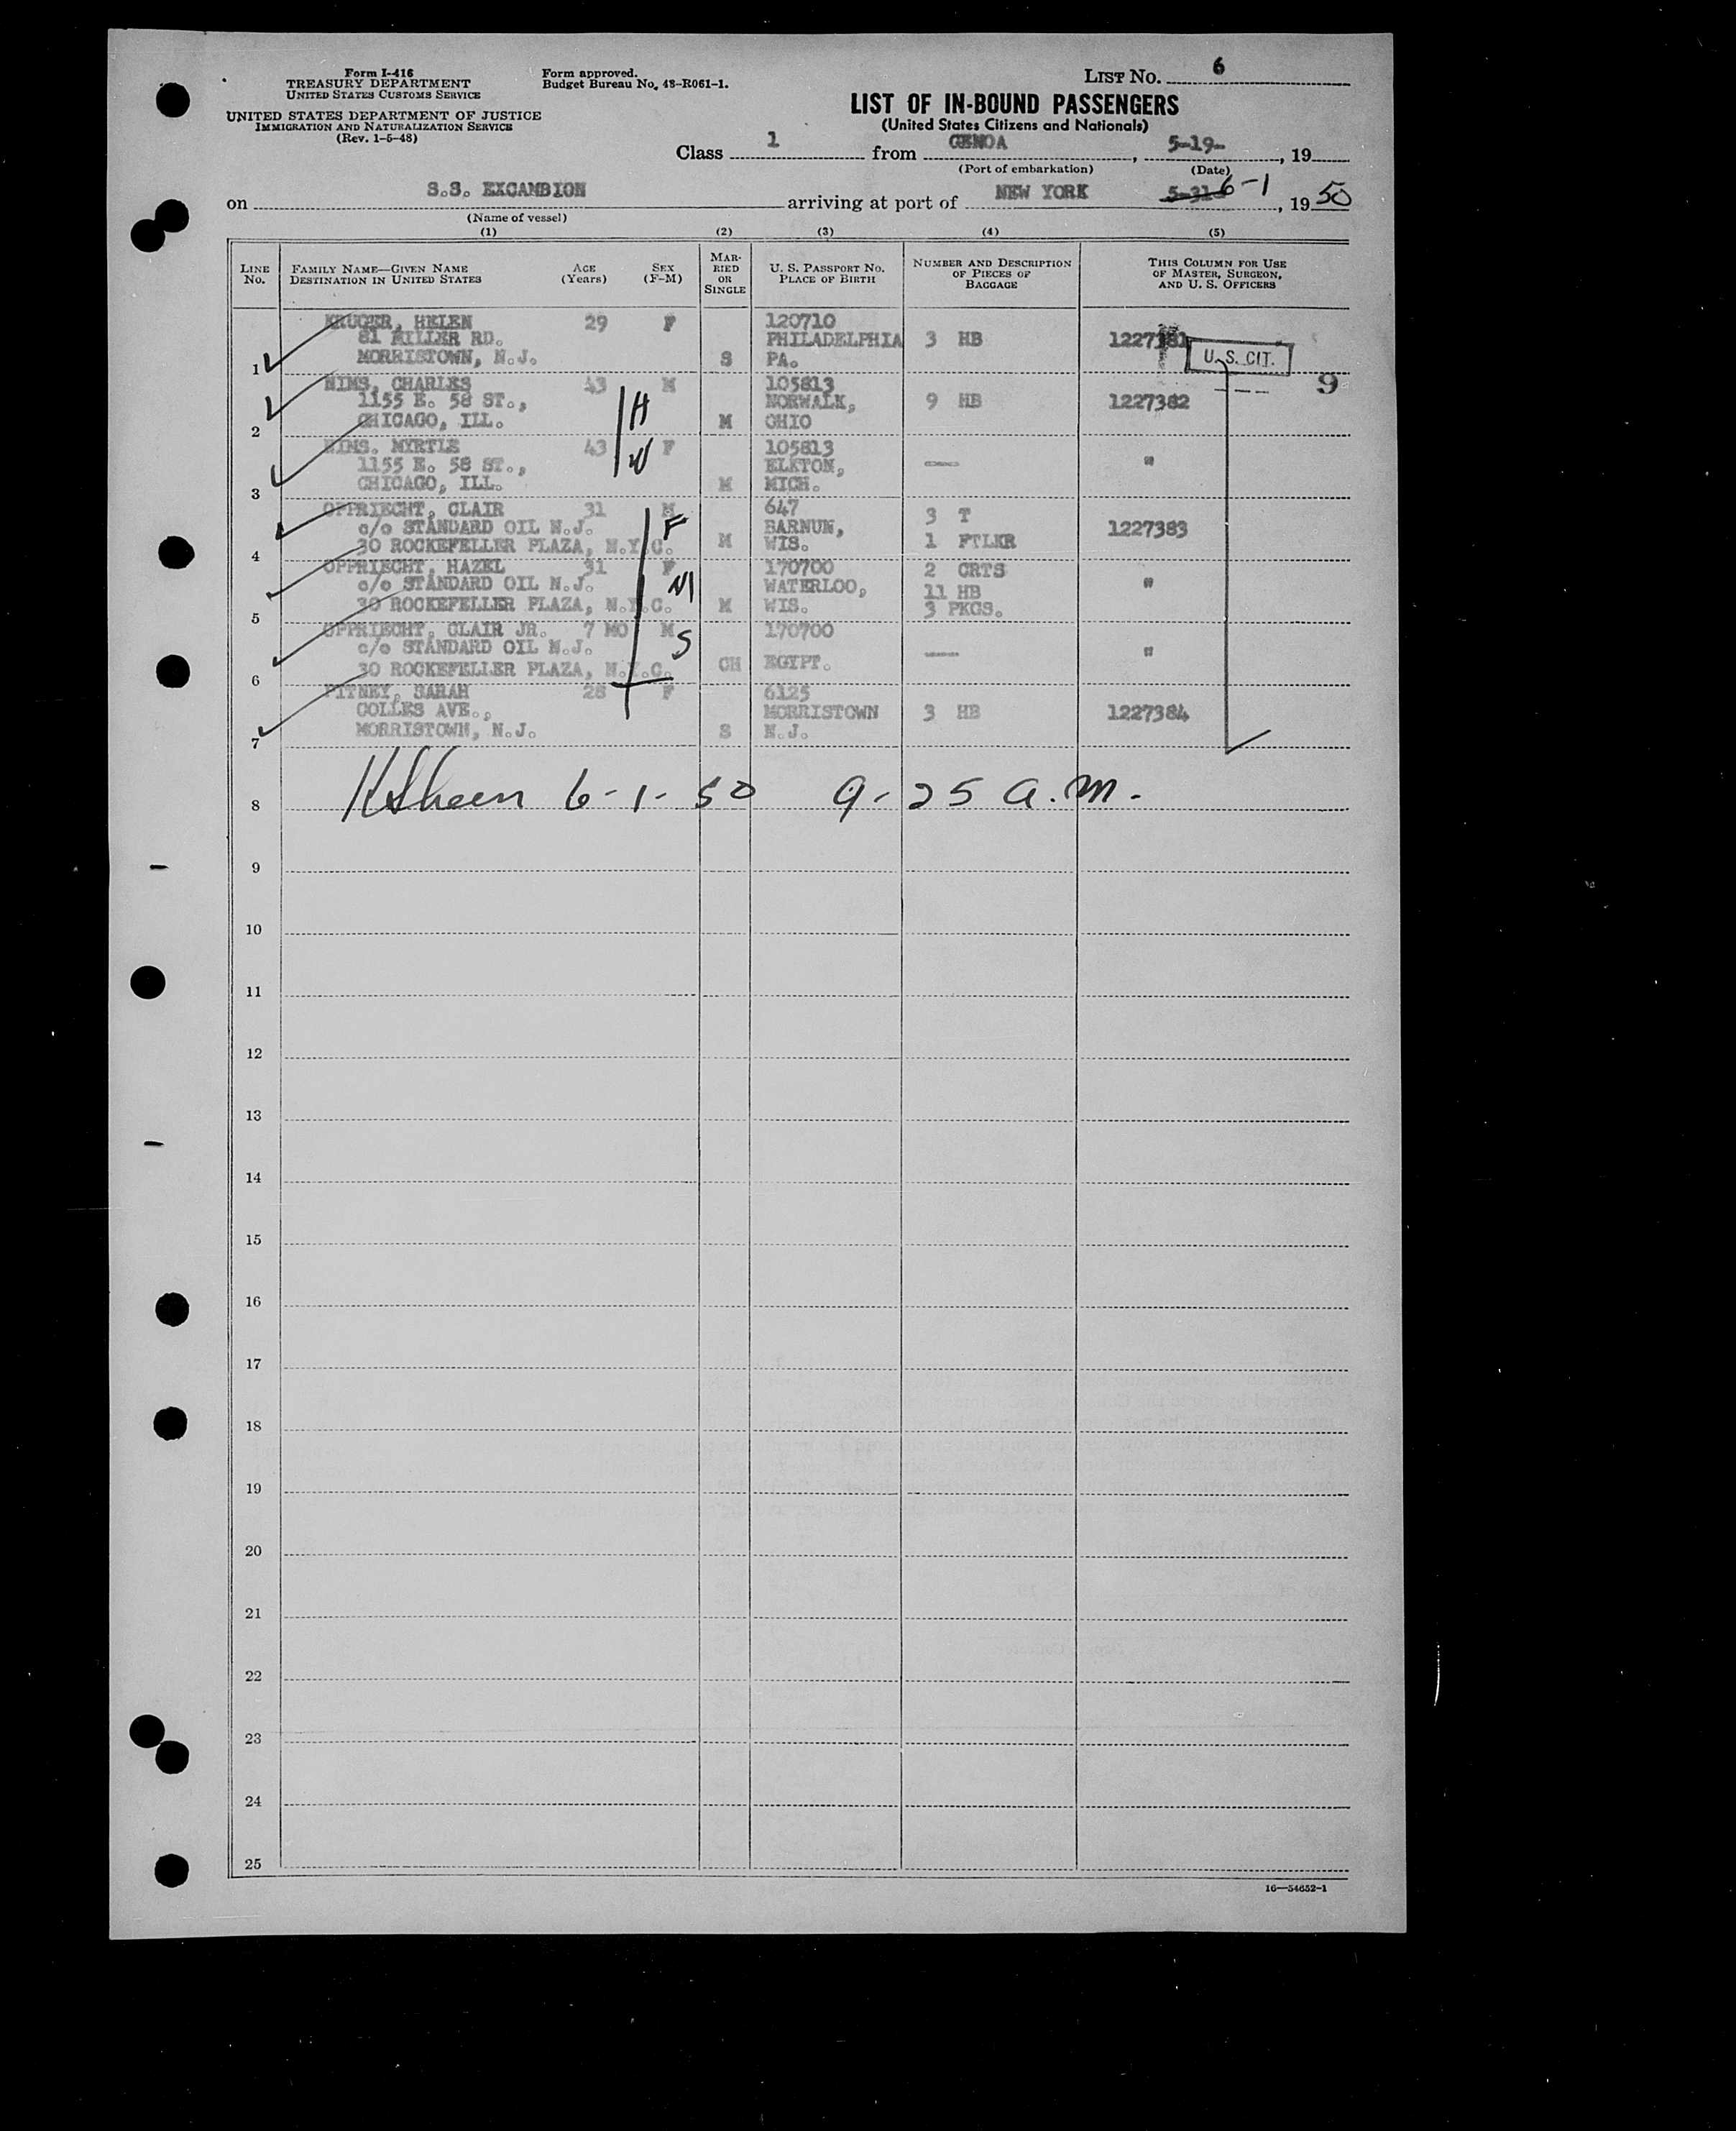 Form I-416
TREASURY DEPARTMENT
UNITED STATES CUSTOMS SERVICE
UNITED STATES DEPARTMENT OF JUSTICE
IMMIGRATION AND NATURALIZATION SERVICE
(Rev. 1-5-48)
Form approved.
Budget Bureau No. 43-R061-1.
LIST NO. 6
LIST OF IN-BOUND PASSENGERS
(United States Citizens and Nationals)
Class 1 from GENOA, 5-19-, 19
(Port of embarkation) (Date)
on S.S. EXCAMBION arriving at port of NEW YORK 5-31 6-1, 1950
(Name of vessel)
(1) (2) (3) (4) (5)
LINE NO.
FAMILY NAME—GIVEN NAME
DESTINATION IN UNITED STATES
AGE (Years)
SEX (F-M)
MARRIED OR SINGLE
U. S. PASSPORT NO.
PLACE OF BIRTH
NUMBER AND DESCRIPTION OF PIECES OF BAGGAGE
THIS COLUMN FOR USE OF MASTER, SURGEON, AND U. S. OFFICERS
KRUGER, HELEN 29 F 120710
81 MILLER RD. PHILADELPHIA 3 HB 1227381
1 MORRISTOWN, N.J. S PA. U.S. CIT.
9
NIMS, CHARLES 43 M 105813
1155 E. 58 ST., H NORWALK, 9 HB 1227382
2 CHICAGO, ILL. M OHIO
NIMS. MYRTLE 43 F 105813
1155 E. 58 ST., W ELKTON, — "
3 CHICAGO, ILL. M MICH.
OPPRIECHT, CLAIR 31 M 647 3 T
c/o STANDARD OIL N.J. F BARNUM, 1227383
4 30 ROCKEFELLER PLAZA, N.Y.C. M WIS. 1 FTLKR
OPPRIECHT, HAZEL 31 F 170700 2 CRTS
c/o STANDARD OIL N.J. M WATERLOO, 11 HB "
5 30 ROCKEFELLER PLAZA, N.Y.C. M WIS. 3 PKGS.
OPPRIECHT, CLAIR JR. 7 MO M 170700
c/o STANDARD OIL N.J. S — "
6 30 ROCKEFELLER PLAZA, N.Y.C. CH EGYPT.
PITNEY, SARAH 28 F 6125
COLLES AVE., MORRISTOWN 3 HB 1227384
7 MORRISTOWN, N.J. S N.J.
8 6-1-50 9-25 a.m.
9
10
11
12
13
14
15
16
17
18
19
20
21
22
23
24
25
16—54652-1